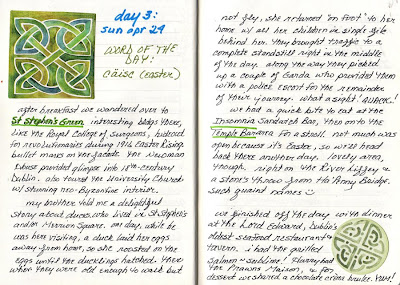 day 3:
sun apr 29
WORD OF THE
DAY:
CÁISC (EASTER)
after breakfast we wandered over to
St Stephen's Green. interesting bldgs there,
like the Royal College of Surgeons, hideout
for revolutionaries during 1916 Easter Rising.
bullet marks on the façade. The Newman
House provided glimpse into 18th-century
Dublin. also toured the University Church
w/ stunning neo-Byzantine interior.
my brother told me a delightful
story about ducks who lived in St. Stephen's
and/or Merrion Square. one day, while he
was here visiting, a duck laid her eggs
away from home, so she roosted on the
eggs until the ducklings hatched. Then
when they were old enough to walk but
not fly, she returned "on foot" to her
home w/ all her children in single file
behind her. They brought traffic to a
complete standstill right in the middle
of the day. along the way they picked
up a couple of Garda who provided them
with a police escort for the remainder
of their journey. what a sight! QUACK!
we had a quick bite to eat at the
Insomnia Sandwich Bar, then onto the
Temple Bar area for a stroll. not much was
open because it's Easter, so we'll head
back there another day. lovely area,
though, right on the River Liffey &
a stone's throw from Ha'Penny Bridge.
such quaint names
we finished off the day with dinner
at the Lord Edward, Dublin's
oldest seafood restaurant &
tavern. i had the grilled
salmon - sublime! Harry had
the Prawns Maison, & for
dessert we shared a chocolate crème brulee. Yum!